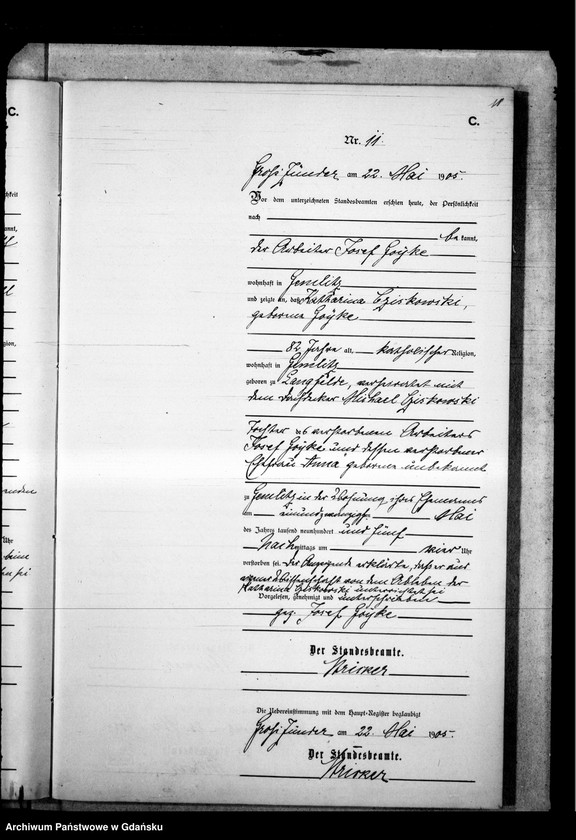 C.
Nr. 11.
Groß Zünder am 22. Mai 1905.
Vor dem unterzeichneten Standesbeamten erschien heute, der Persönlichkeit
nach
be kannt,
der Arbeiter Josef Goÿke
wohnhaft in Gemlitz
und zeigte an, daß Katharina Cziskowski,
geborene Goÿke
82 Jahre alt, katholischer Religion,
wohnhaft in Gemlitz
geboren zu Langfelde, verheiratet mit
dem Dachdecker Michael Cziskowski
Tochter des verstorbenen Arbeiters
Josef Goÿke und dessen verstorbener
Ehefrau Anna geborene unbekannt
zu Gemlitz in der Wohnung ihres Ehemannes
am einundzwanzigsten Mai
des Jahres tausend neunhundert und fünf
Nach mittags um vier Uhr
verstorben sei. Der Anzeigende erklärte, daß er aus
eigener Wissenschaft von dem Ableben der
Katharina Cziskowski unterrichtet sei
Vorgelesen, genehmigt und unterschrieben
gez. Josef Goÿke
Der Standesbeamte.
Die Uebereinstimmung mit dem Haupt-Register beglaubigt
Groß Zünder am 22. Mai 1905.
Der Standesbeamte.
Archiwum Państwowe w Gdańsku